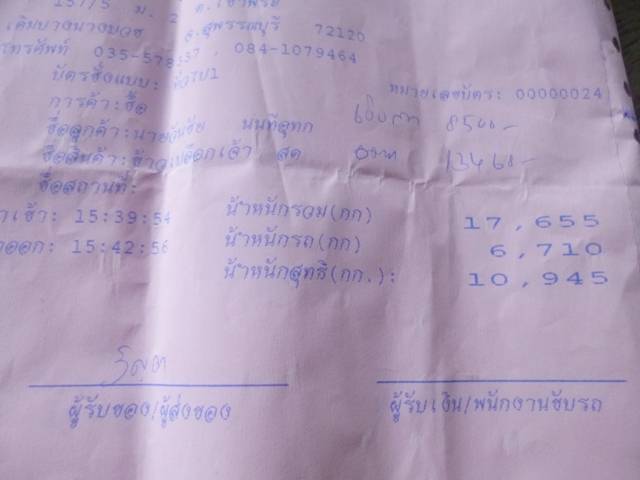 157/5 ม. 2 ต.เขาพระ
เดิมบางนางบวช จ.สุพรรณบุรี 72120
โทรศัพท์ 035-578337 , 084-1079464
บัตรชั่งแบบ: ทั่วไป1
หมายเลขบัตร: 00000024
การค้า:ซื้อ
ชื่อลูกค้า:นายวันชัย นนทีสุทก 8500-
ชื่อสินค้า:ข้าวเปลือกเจ้า สด 13460-
ชื่อสถานที่:
าเข้า: 15:39:54 น้ำหนักรวม(กก) 17,655
าออก: 15:42:56 น้ำหนักรถ(กก) 6,710
น้ำหนักสุทธิ(กก.): 10,945
ผู้รับของ/ผู้ส่งของ ผู้รับเงิน/พนักงานขับรถ